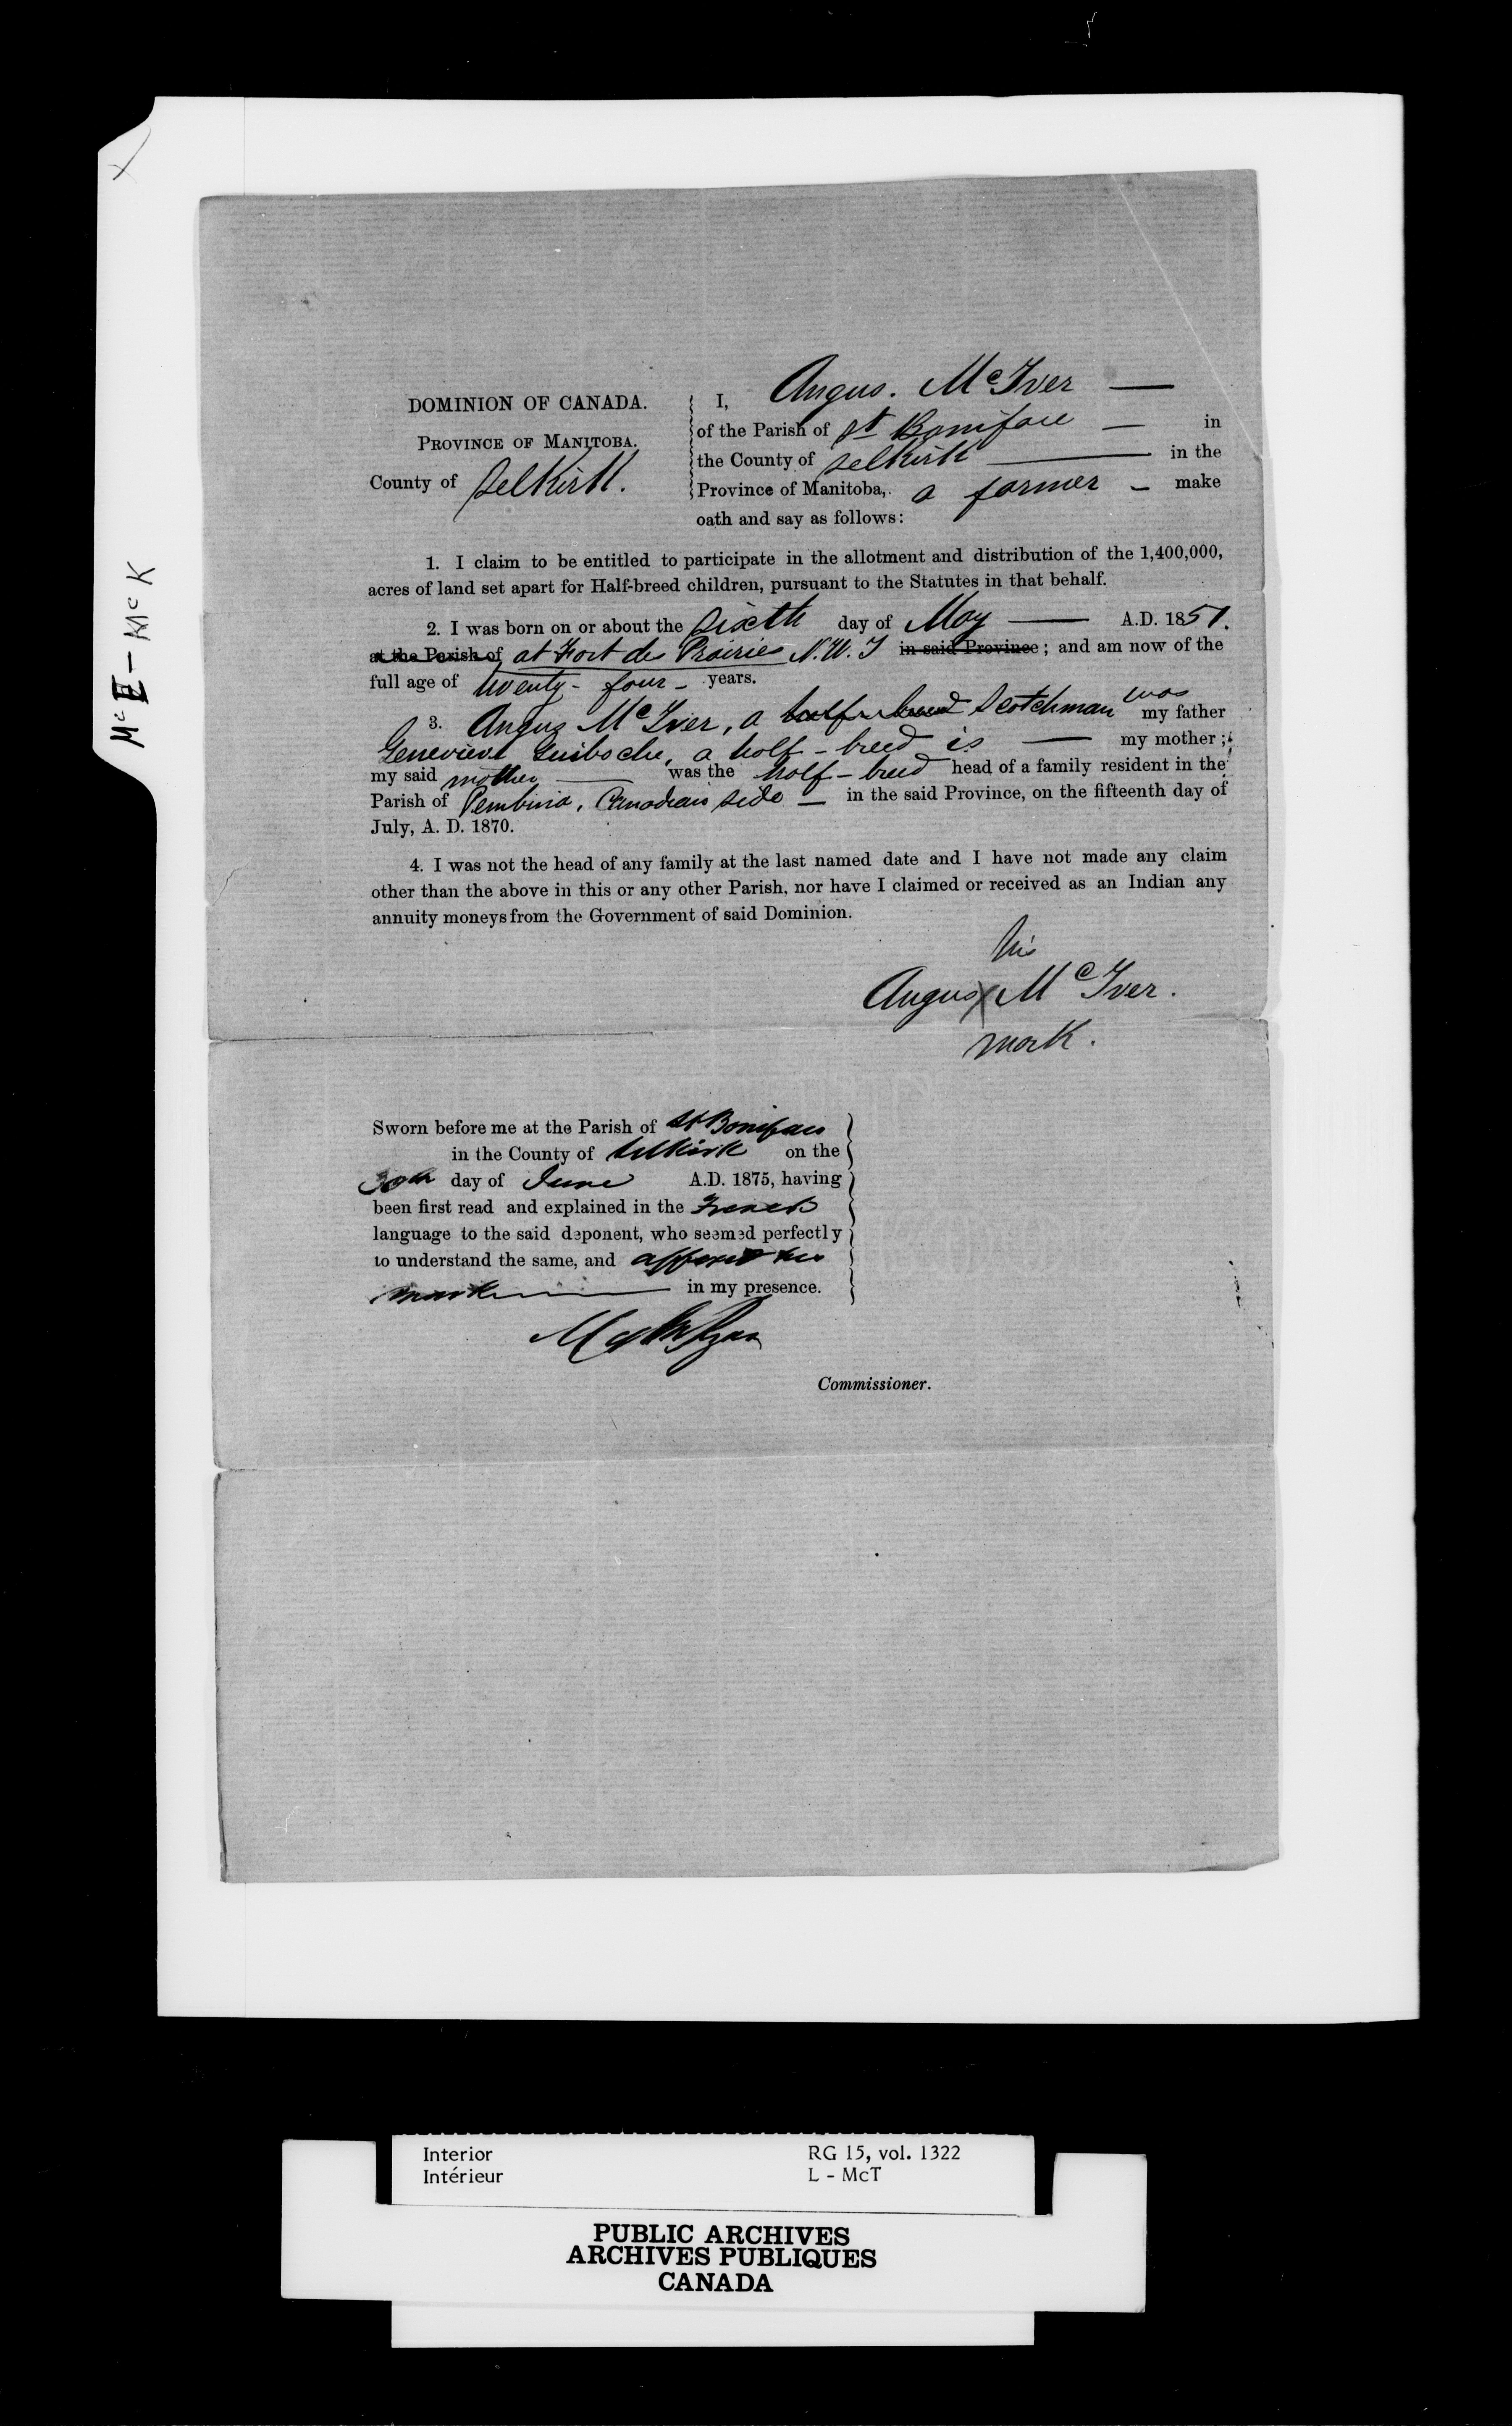 McE - McK
DOMINION OF CANADA.
PROVINCE OF MANITOBA.
County of Selkirk.
I, Angus. McIver —
of the Parish of St Boniface — in
the County of Selkirk — in the
Province of Manitoba, a farmer — make
oath and say as follows:
1. I claim to be entitled to participate in the allotment and distribution of the 1,400,000,
acres of land set apart for Half-breed children, pursuant to the Statutes in that behalf.
2. I was born on or about the Sixth day of May — A.D. 1851.
at the Parish of at Fort des Prairies N.W.T in said Province; and am now of the
full age of twenty-four - years.
3. Angus McIver, a half breed Scotchman was my father
Genevieve Guiboche, a half-breed is — my mother;
my said mother — was the half-breed head of a family resident in the
Parish of Pembina, Canadian side — in the said Province, on the fifteenth day of
July, A. D. 1870.
4. I was not the head of any family at the last named date and I have not made any claim
other than the above in this or any other Parish, nor have I claimed or received as an Indian any
annuity moneys from the Government of said Dominion.
his
Angus X McIver.
mark.
Sworn before me at the Parish of St Boniface
in the County of Selkirk on the
30th day of June A.D. 1875, having
been first read and explained in the French
language to the said deponent, who seemed perfectly
to understand the same, and affixed his
mark — in my presence.
Ryan
Commissioner.
Interior RG 15, vol. 1322
Intérieur L - McT
PUBLIC ARCHIVES
ARCHIVES PUBLIQUES
CANADA